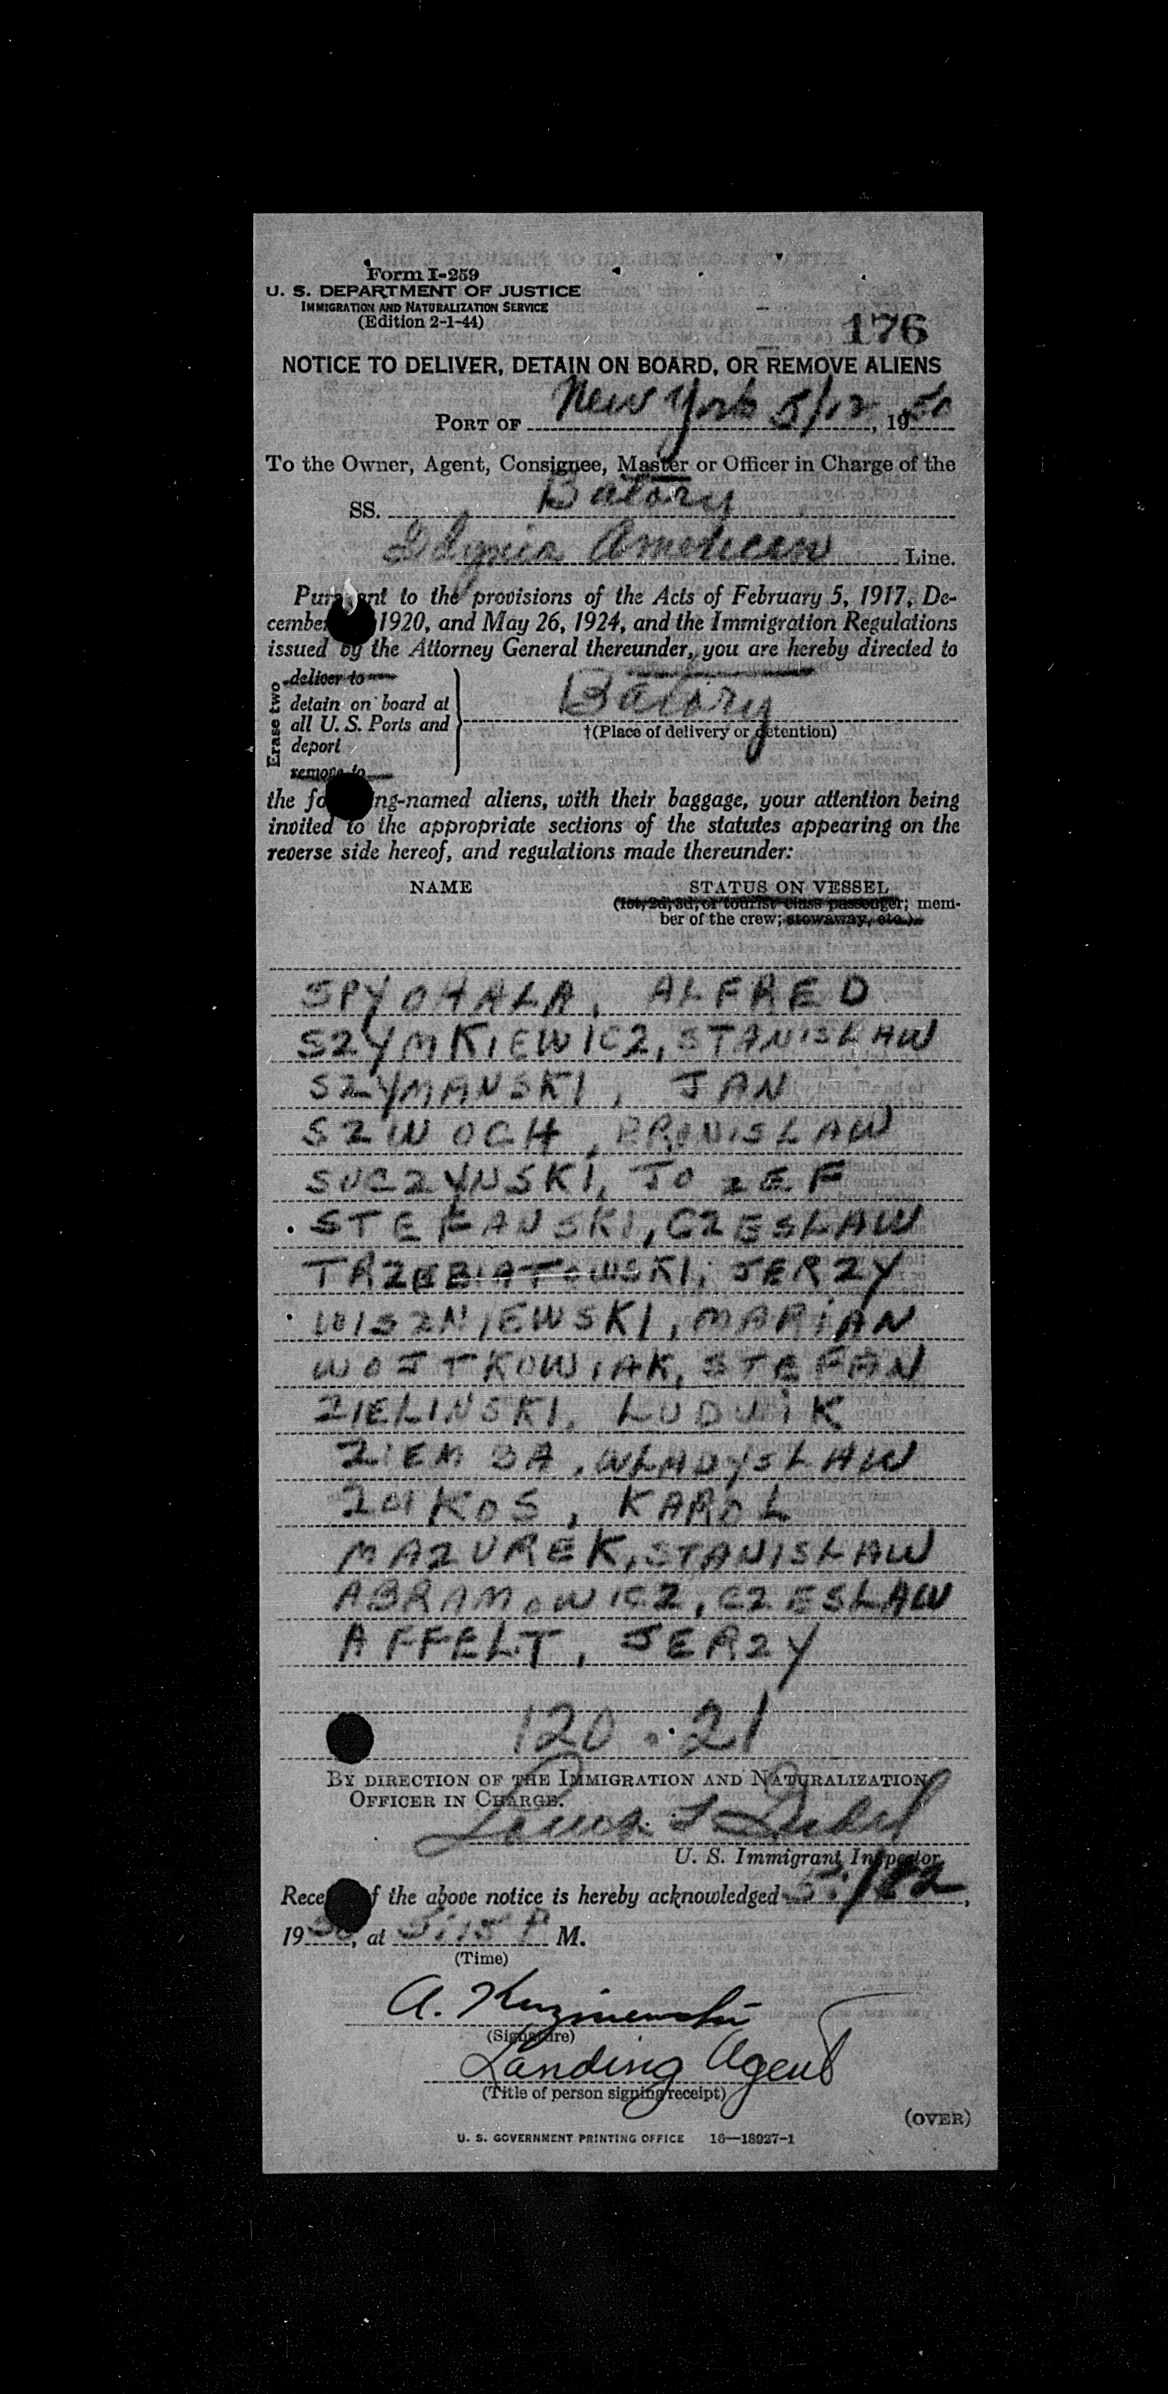 Form I-259
U. S. DEPARTMENT OF JUSTICE
IMMIGRATION AND NATURALIZATION SERVICE
(Edition 2-1-44)
176
NOTICE TO DELIVER, DETAIN ON BOARD, OR REMOVE ALIENS
PORT OF New York 5/12, 1950
To the Owner, Agent, Consignee, Master or Officer in Charge of the
SS. Batory
Gdynia American Line.
Pursuant to the provisions of the Acts of February 5, 1917, De-
cember 1920, and May 26, 1924, and the Immigration Regulations
issued by the Attorney General thereunder, you are hereby directed to
Erase two
deliver to
detain on board at
all U. S. Ports and
deport
remove to
Batory
†(Place of delivery or detention)
the following-named aliens, with their baggage, your attention being
invited to the appropriate sections of the statutes appearing on the
reverse side hereof, and regulations made thereunder:
NAME STATUS ON VESSEL
(1st, 2d, 3d, or tourist class passenger; mem-
ber of the crew; stowaway, etc.)
SPYCHALA, ALFRED
SZYMKIEWICZ, STANISLAW
SZYMANSKI, JAN
SZWOCH, BRONISLAW
SUCZYNSKI, JOZEF
STEFANSKI, CZESLAW
TRZEBIATOWSKI, JERZY
WISZNIEWSKI, MARIAN
WOJTKOWIAK, STEFAN
ZIELINSKI, LUDWIK
ZIEMBA, WLADYSLAW
KAROL
MAZUREK, STANISLAW
ABRAMOWICZ, CZESLAW
AFFELT, JERZY
120 . 21
BY DIRECTION OF THE IMMIGRATION AND NATURALIZATION
OFFICER IN CHARGE.
U. S. Immigrant Inspector.
Receipt of the above notice is hereby acknowledged
1950, at 5:15 P M.
(Time)
A.
(Signature)
Landing Agent
(Title of person signing receipt)
(OVER)
U. S. GOVERNMENT PRINTING OFFICE 16—18927-1